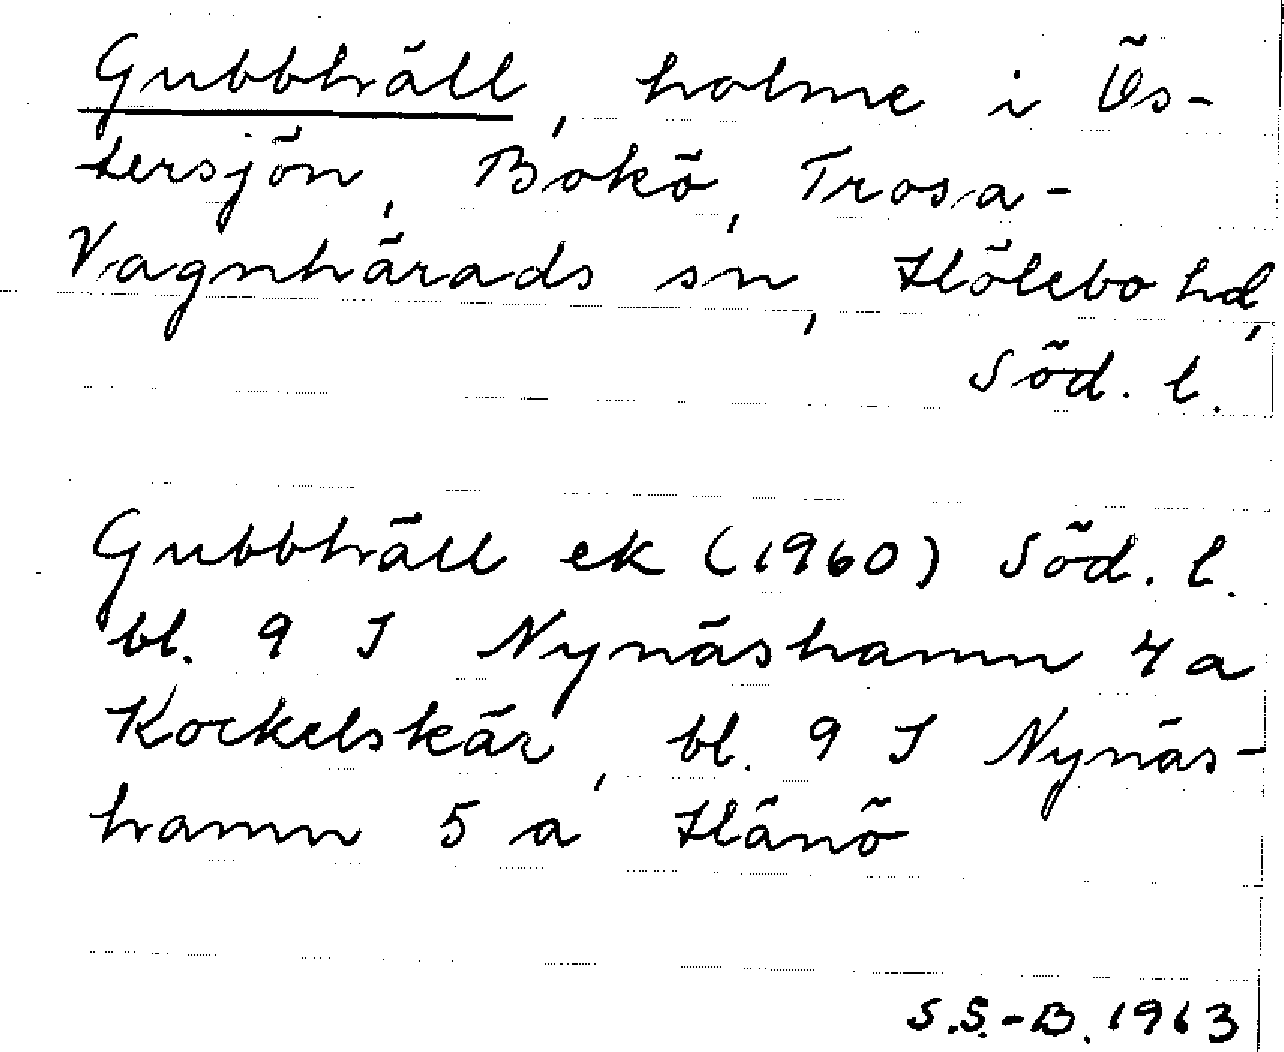 Gubbhäll, holme i Ös-
tersjön, Bokö, Trosa-
Vagnhärads sn, Hölebo hd,
Söd. l.
Gubbhäll ek (1960) Söd. l.
bl. 9 I Nynäshamn 4 a
Kockelskär, bl. 9 I Nynäs-
hamn 5 a Hänö
S.S.-B. 1963